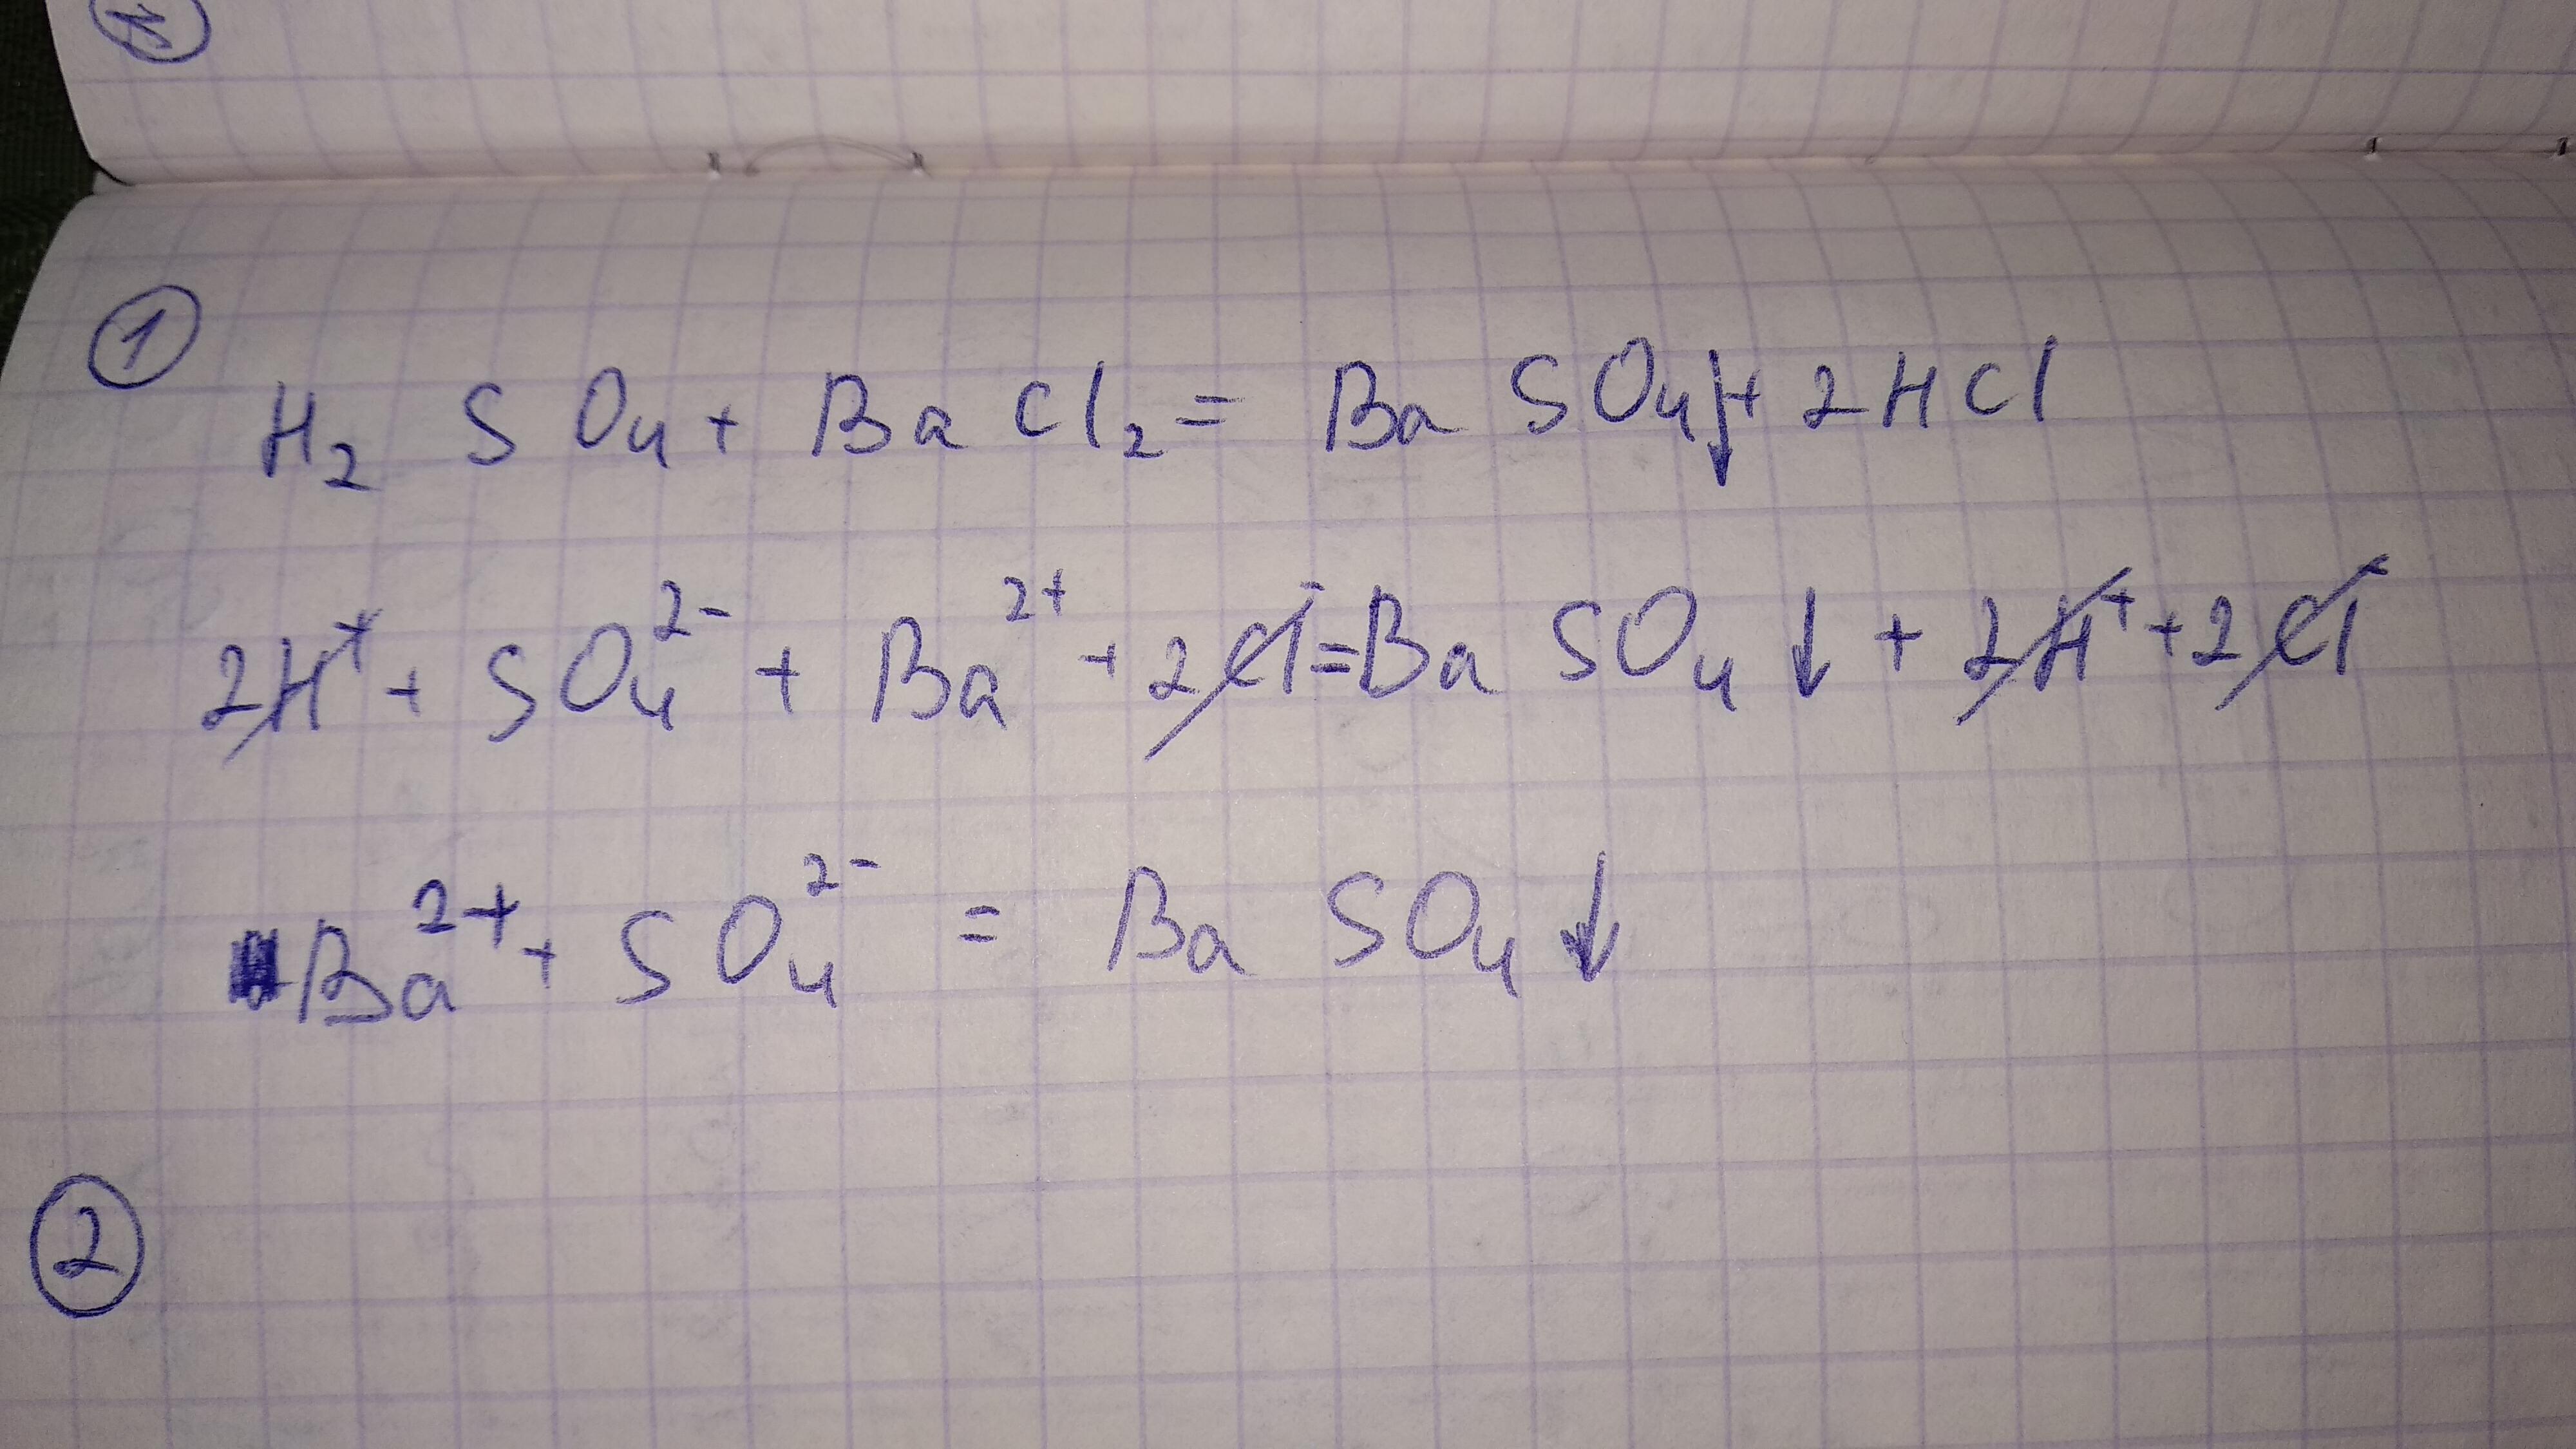 ①
H₂ SO₄ + Ba Cl₂ = Ba SO₄↓ + 2HCl
2H⁺ + SO₄²⁻ + Ba²⁺ + 2Cl⁻ = Ba SO₄ ↓ + 2H⁺ + 2Cl⁻
Ba²⁺ + SO₄²⁻ = Ba SO₄ ↓
②